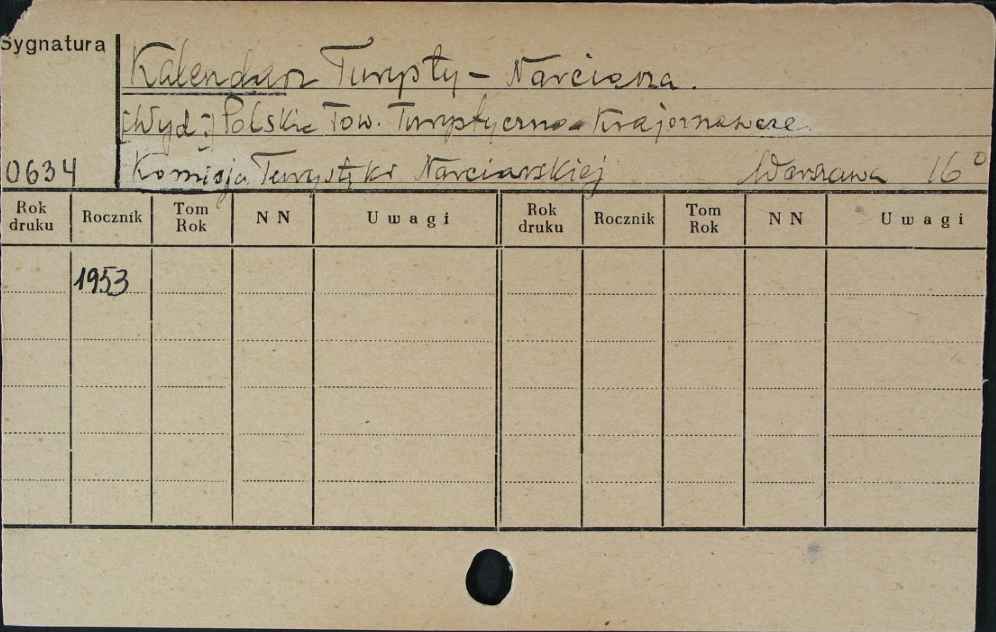 Sygnatura
Kalendarz Turysty - Narciarza.
[Wyd.:] Polskie Tow. Turystyczno-Krajoznawcze.
0634 Komisja Turystyki Narciarskiej Warszawa 16°
Rok druku Rocznik Tom Rok NN Uwagi Rok druku Rocznik Tom Rok NN Uwagi
1953